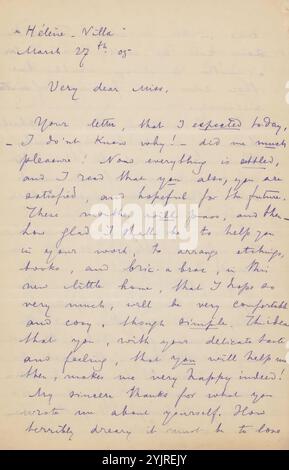 "Hélène-Villa"
March 27th 05
Very dear Miss,
Your letter, that I expected today,
- I do'nt know why! - did me much
pleasure! Now everything is settled,
and I read that you also, you are
satisfied, and hopeful for the future.
These months will pass, and then
how glad I shall be to help you
in your work, to arrange etchings,
books, and bric-a-brac, in this
new little home, that I hope so
very much, will be very comfortable
and cosy, though simple. The idea
that you, with your delicate taste
and feeling, that you will help me
then, makes me very happy indeed!
My sincere thanks for what you
wrote me about yourself. How
terribly dreary it must be to lose
alamy
Image ID: 2YJREJY
www.alamy.com